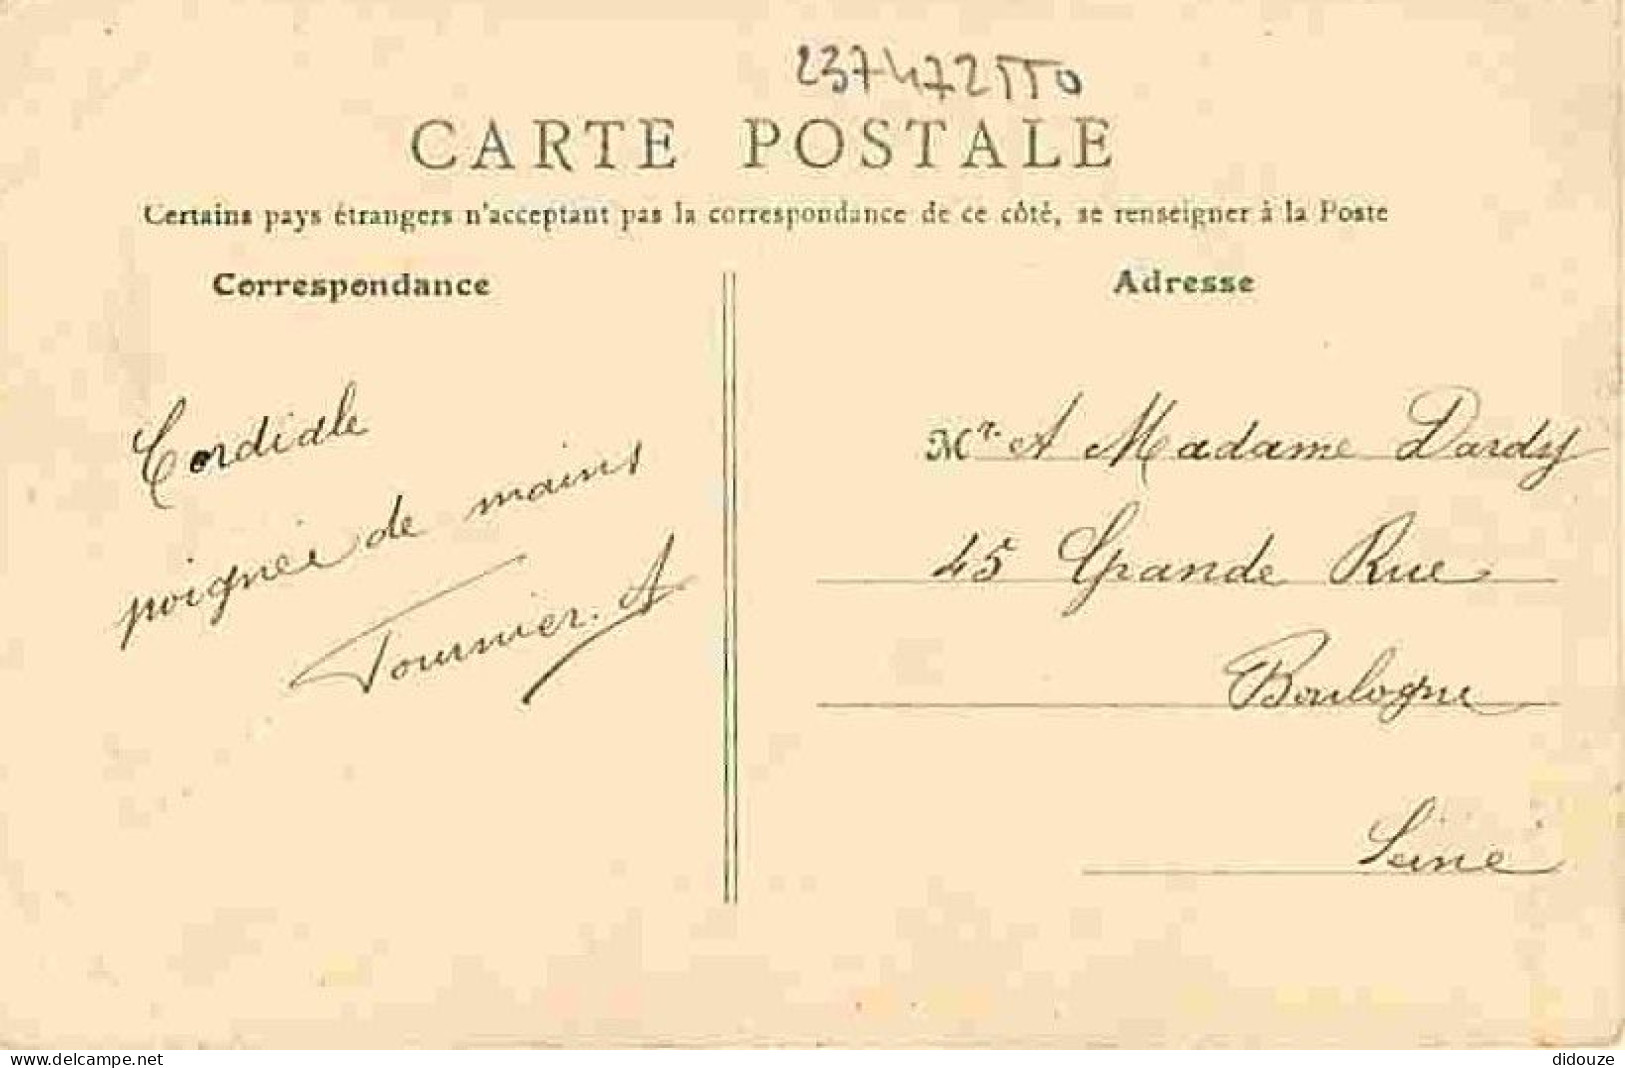 237472TT0
CARTE POSTALE
Certains pays étrangers n'acceptant pas la correspondance de ce côté, se renseigner à la Poste
Correspondance
Adresse
Cordiale
poignée de mains
Fournier. A
Mr. et Madame Dardy
45 Grande Rue
Boulogne
Seine
www.delcampe.net
didouze